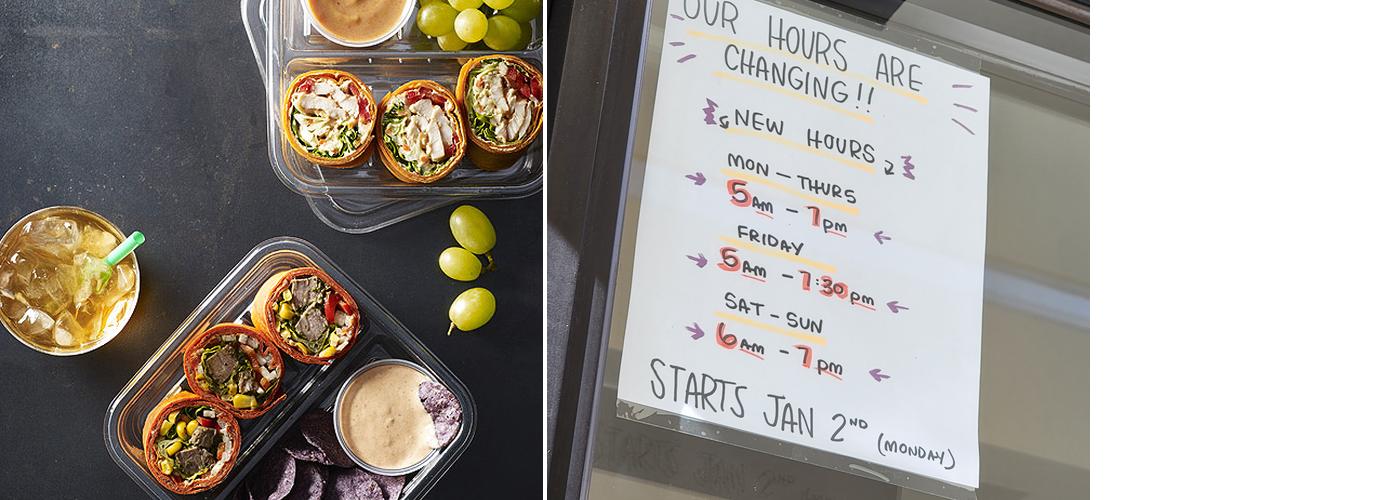 OUR HOURS ARE
CHANGING!!
NEW HOURS
MON - THURS
5AM - 7pm
FRIDAY
5AM - 7:30pm
SAT - SUN
6AM - 7pm
STARTS JAN 2ND (MONDAY)